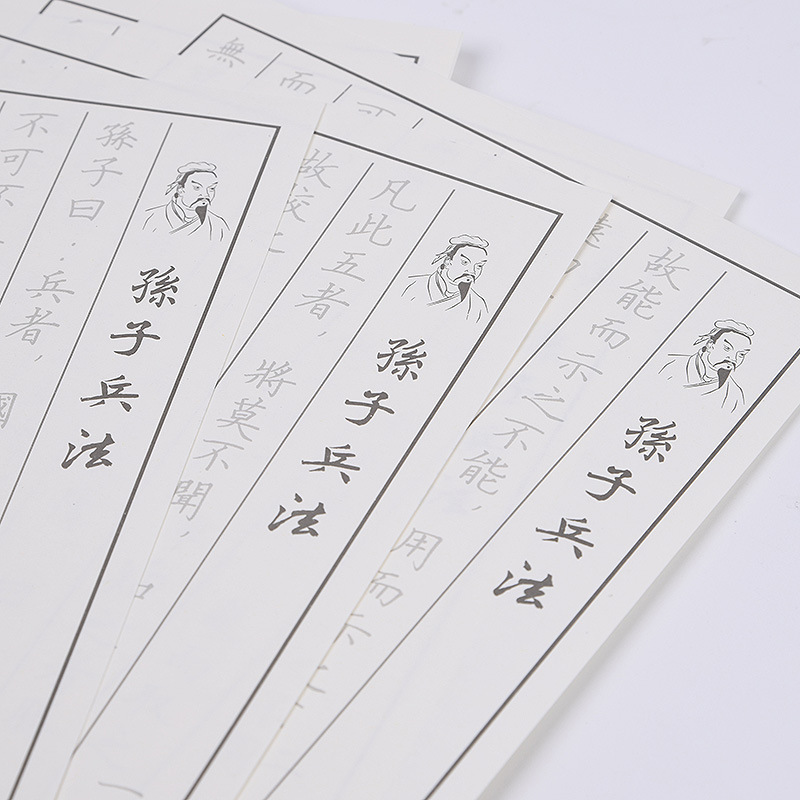 孫子兵法
孫子曰：兵者，國
不可不
孫子兵法
凡此五者，將莫不聞，
故校之
孫子兵法
故能而示之不能，用而示之
無
而
可